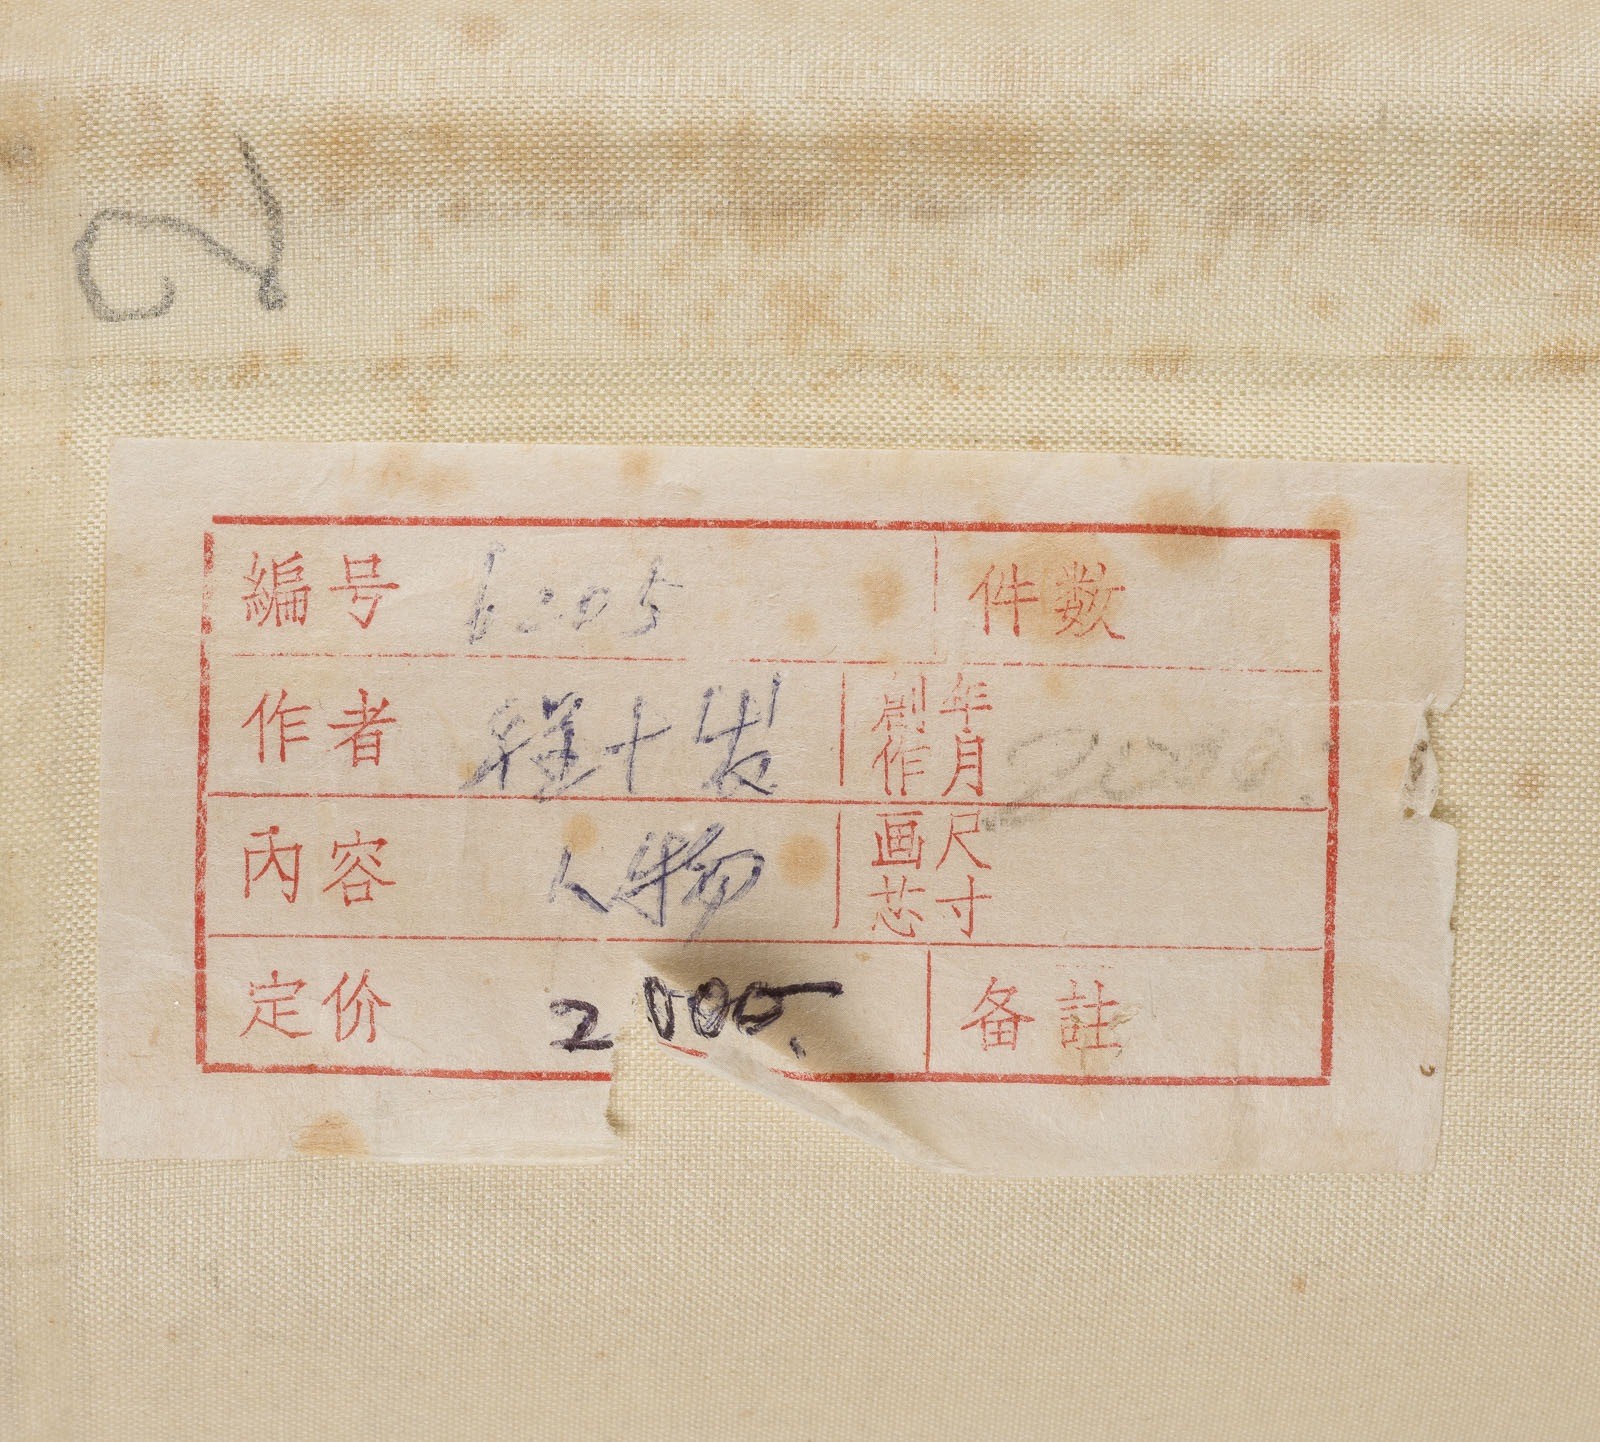 2
編号 6205 件数
作者 程十发 創作年月 2000.
內容 人物 画芯尺寸
定价 2000.
备註